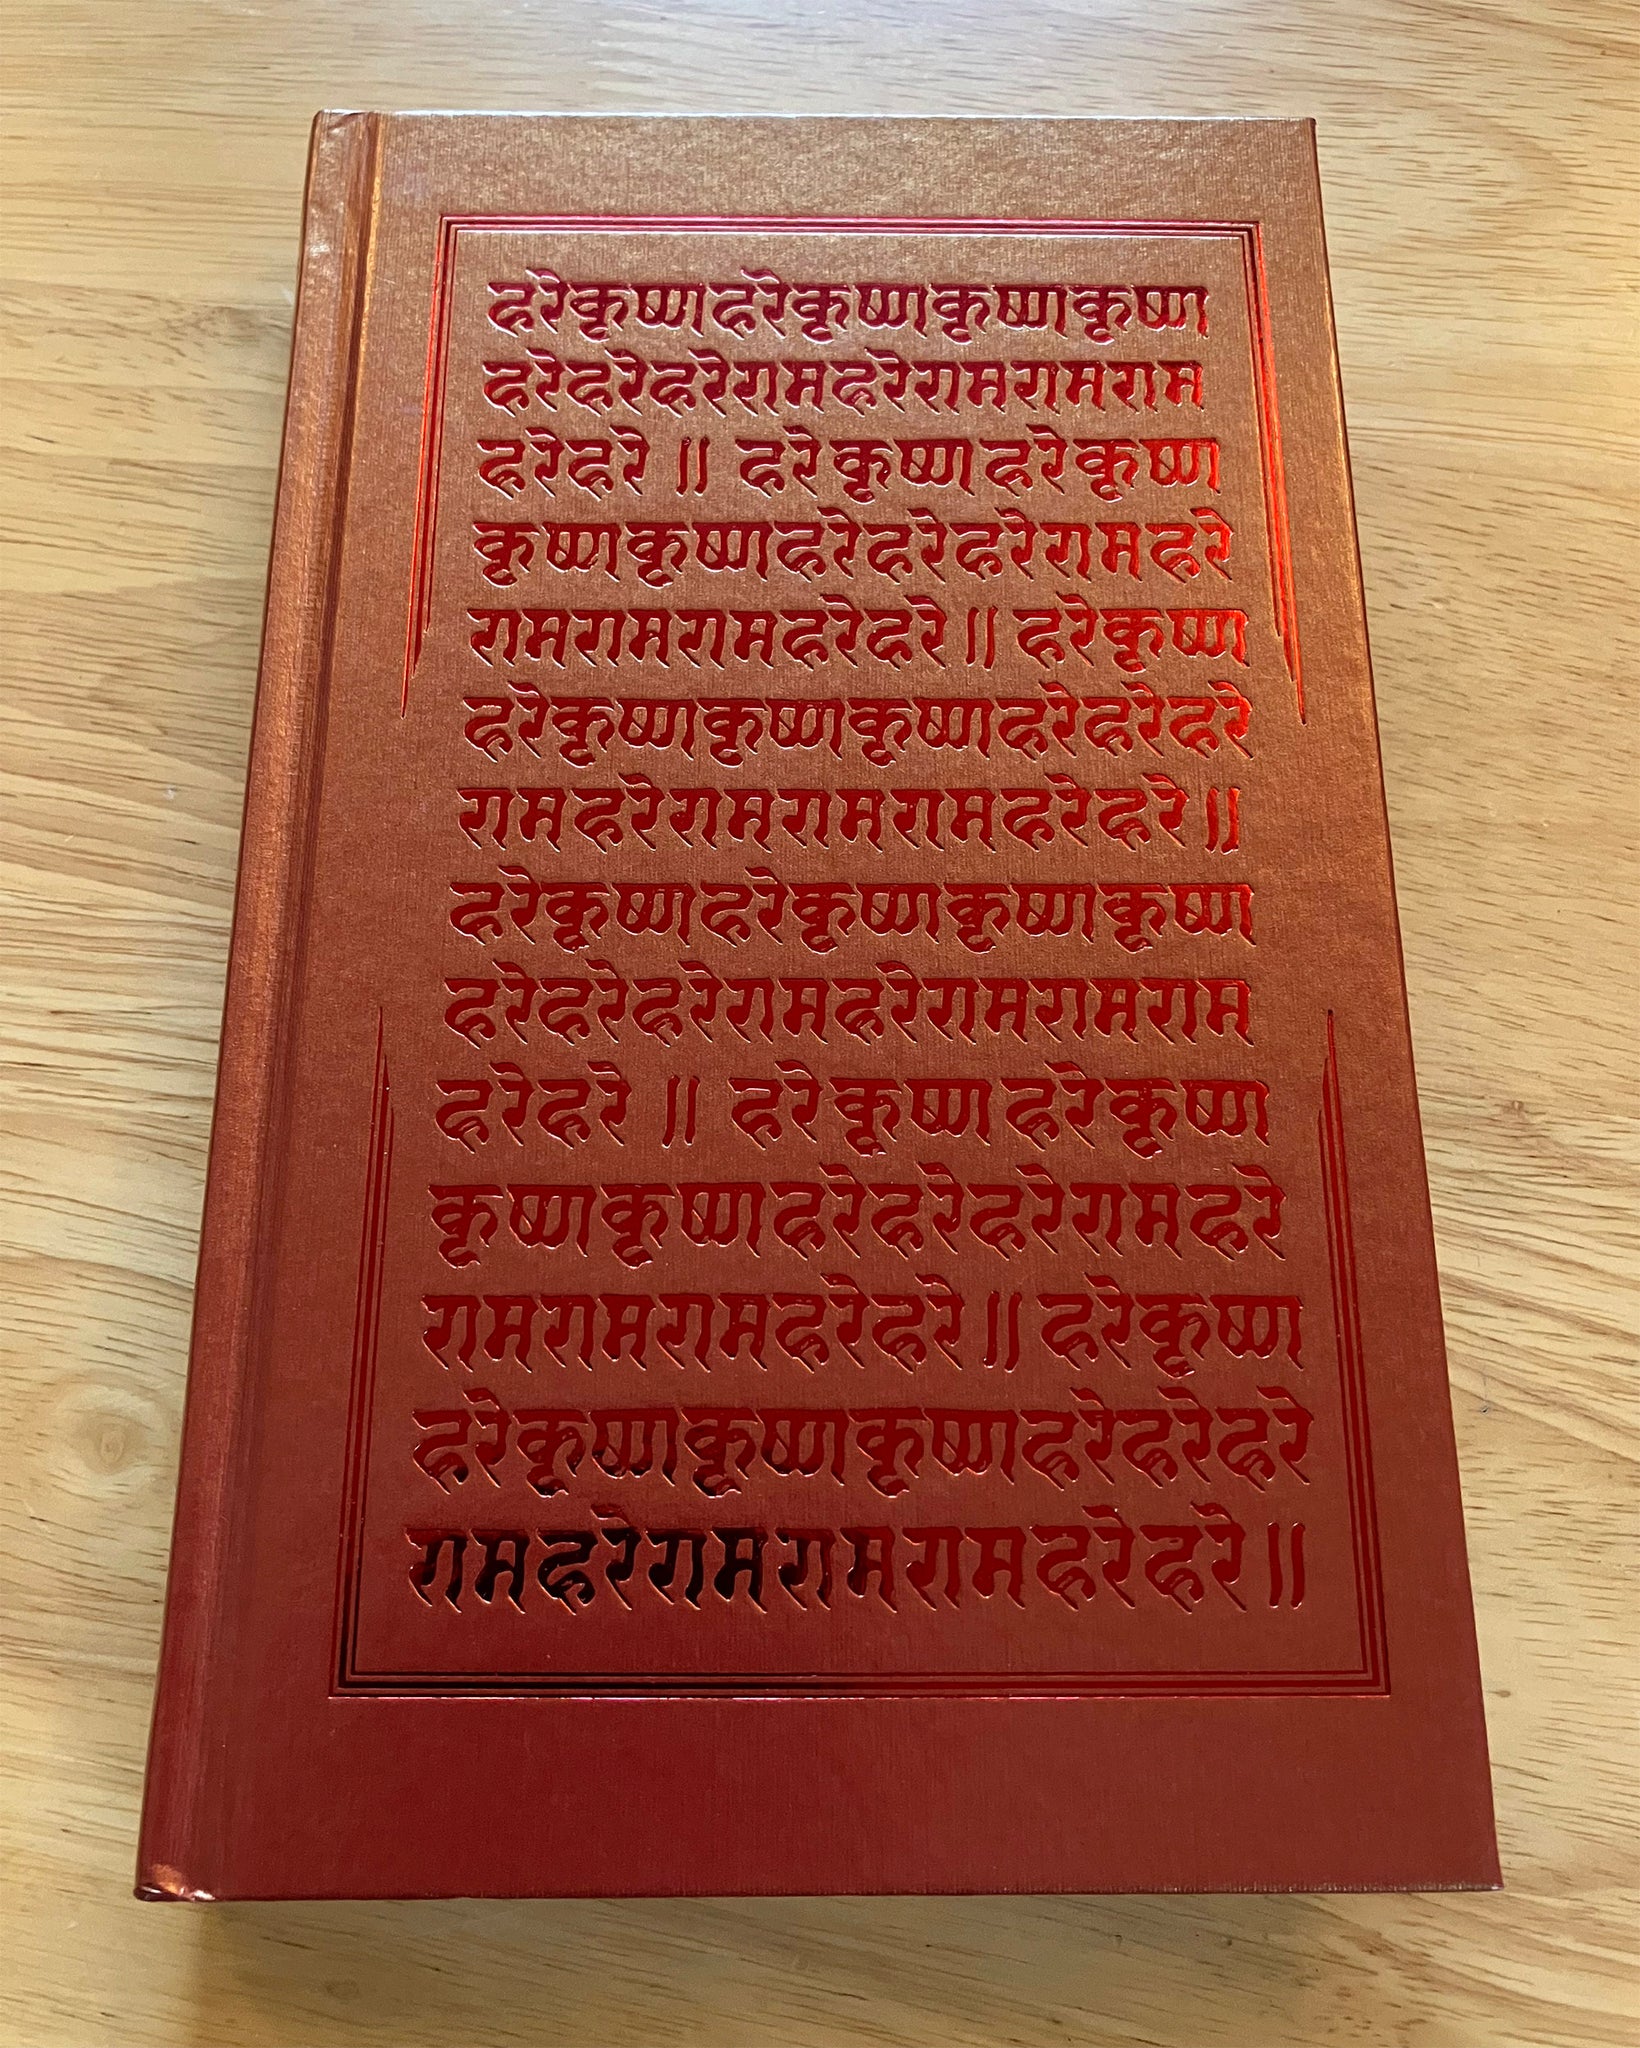 हरेकृष्णहरेकृष्णकृष्णकृष्ण
हरेहरेहरेरामहरेरामरामराम
हरेहरे॥ हरेकृष्णहरेकृष्ण
कृष्णकृष्णहरेहरेहरेरामहरे
रामरामरामहरेहरे॥हरेकृष्ण
हरेकृष्णकृष्णकृष्णहरेहरेहरे
रामहरेरामरामरामहरेहरे॥
हरेकृष्णहरेकृष्णकृष्णकृष्ण
हरेहरेहरेरामहरेरामरामराम
हरेहरे॥ हरेकृष्णहरेकृष्ण
कृष्णकृष्णहरेहरेहरेरामहरे
रामरामरामहरेहरे॥हरेकृष्ण
हरेकृष्णकृष्णकृष्णहरेहरेहरे
रामहरेरामरामरामहरेहरे॥